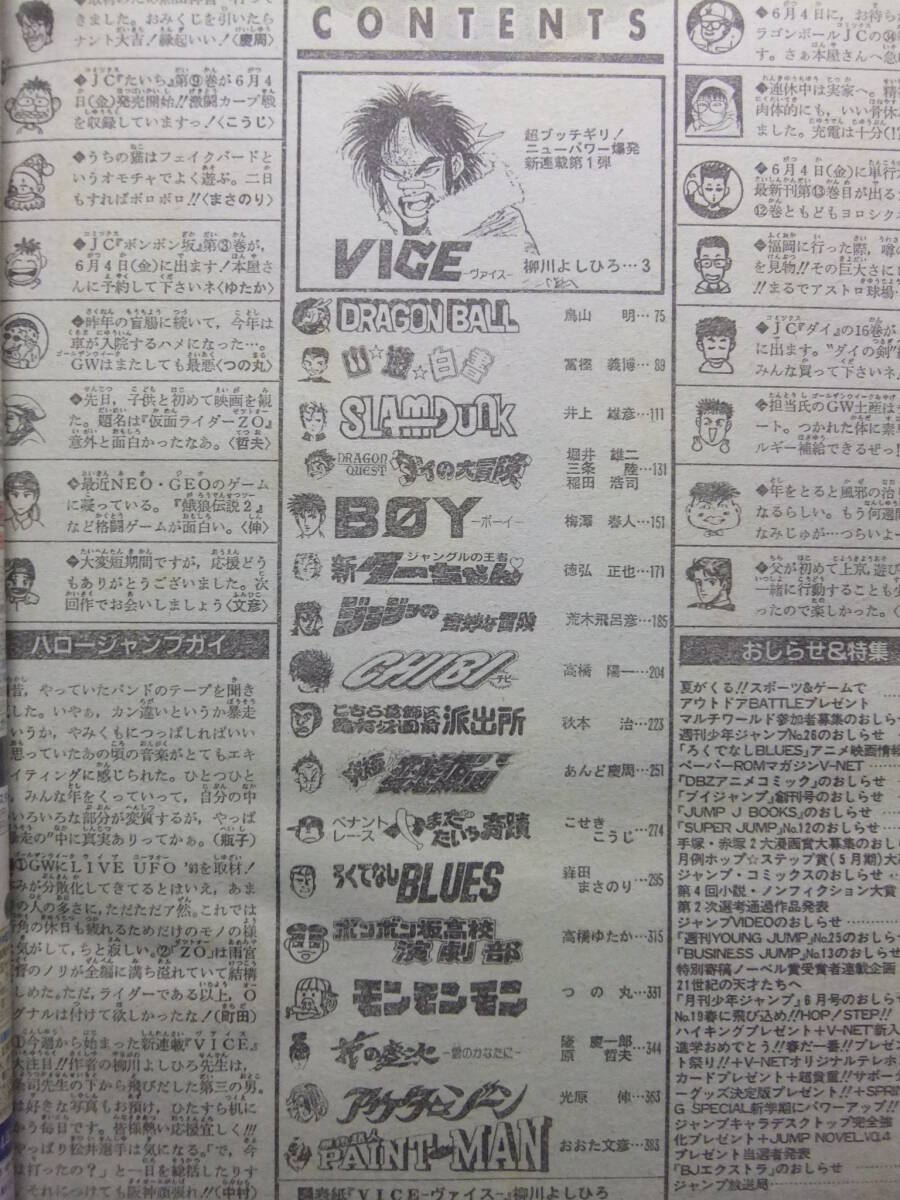 CONTENTS
ました。おみくじを引いたら
ナント大吉!縁起いい!〈慶周〉
◆JC『たいち』第⑨巻が6月4
日(金)発売開始!!激闘カープ戦
を収録していますっ!〈こうじ〉
◆うちの猫はフェイクバードと
いうオモチャでよく遊ぶ。二日
もすればボロボロ!!〈まさのり〉
◆JC『ボンボン坂』第③巻が、
6月4日(金)に出ます!本屋さ
んに予約して下さいネ〈ゆたか〉
◆昨年の盲腸に続いて,今年は
車が入院するハメになった…。
GWはまたしても最悪〈つの丸〉
◆先日,子供と初めて映画を観
た。題名は『仮面ライダーZO』
意外と面白かったなあ。〈哲夫〉
◆最近NEO・GEOのゲーム
に凝っている。『餓狼伝説2』
など格闘ゲームが面白い。〈伸〉
◆大変短期間ですが,応援どう
もありがとうございました。次
回作でお会いしましょう〈文彦〉
ハロージャンプガイ
昔,やっていたバンドのテープを聞き
した。いやぁ,カン違いというか暴走
いうか,やみくもにつっぱしればいい
思っていたあの頃の音楽がとてもエキ
イティングに感じられた。ひとつひと
みんな年をくっていって,自分の中
いろいろな部分が変質するが,やっぱ
走の"中に真実ありってかぁ。(瓶子)
①GWにLIVE UFO '93を取材!
みが分散化してきてるとはいえ,あま
の人の多さに,ただただア然。これでは
角の休日も疲れるためだけのモノの様
気がして,ちと寂しい。②『ZO』は雨宮
督のノリが全編に満ち溢れていて結構
しめた。ただ,ライダーである以上,O
グナルは付けて欲しかったな!(町田)
①今週から始まった新連載『VICE』
大注目!!作者の柳川よしひろ先生は,
条司先生の下から飛びだした第三の男。
は好きな写真もお預け,ひたすら机に
かう毎日です。皆様熱い応援宜しく!!!
やっぱり松井選手は気になる。「で,今
は打ったの?」と一日を総括したりす
それにつけても阪神頑張れ!!(中村)
超ブッチギリ!
ニューパワー爆発
新連載第1弾
VICE -ヴァイス- 柳川よしひろ…3
DRAGON BALL 鳥山 明…75
幽☆遊☆白書 冨樫 義博…89
SLAM DUNK 井上 雄彦…111
DRAGON QUEST ダイの大冒険 堀井 雄二
三条 陸…131
稲田 浩司
BØY -ボーイ- 梅澤 春人…151
新ジャングルの王者ターちゃん♡ 徳弘 正也…171
ジョジョの奇妙な冒険 荒木飛呂彦…185
CHIBI チビ 高橋 陽一…204
こちら葛飾区亀有公園前派出所 秋本 治…223
あんど慶周…251
ペナントレース やまだたいちの奇蹟 こせき
こうじ…274
ろくでなしBLUES 森田
まさのり…295
ボンボン坂高校演劇部 高橋ゆたか…315
モンモンモン つの丸…331
花の慶次 -雲のかなたに- 隆 慶一郎
原 哲夫…344
アウターゾーン 光原 伸…363
PAINT★MAN おおた文彦…383
表紙『VICE-ヴァイス-』柳川よしひろ
◆6月4日に,お待ちか
ラゴンボールJCの㉞
す。さぁ本屋さんへ急
◆連休中は実家へ。精神
肉体的にも,いい骨休み
ました。充電は十分(!?
◆6月4日(金)に単行本
最新刊第⑬巻目が出る
⑫巻ともどもヨロシク
◆福岡に行った際,噂の
を見物!!その巨大さに
!!まるでアストロ球場
◆JC『ダイ』の16巻が
に出ます。"ダイの剣"
みんな買って下さいネ
◆担当氏のGW土産は
ート。つかれた体に素
ルギー補給できるぜっ!
◆年をとると風邪の治り
なるらしい。もう何週間
なみじゅが…つらいよー
◆父が初めて上京,遊び
一緒に行動することも少
ったので楽しかった。〈
おしらせ&特集
夏がくる!!スポーツ&ゲームで
アウトドアBATTLEプレゼント
マルチワールド参加者募集のおしら
週刊少年ジャンプNo.26のおしらせ
「ろくでなしBLUES」アニメ映画情報
ペーパーROMマガジンV-NET
「DBZアニメコミック」のおしらせ
「ブイジャンプ」創刊号のおしらせ
「JUMP J BOOKS」のおしらせ
「SUPER JUMP」No.12のおしらせ
手塚・赤塚2大漫画賞大募集のおしら
月例ホップ☆ステップ賞(5月期)大
ジャンプ・コミックスのおしらせ
第4回小説・ノンフィクション大賞
第2次選考通過作品発表
ジャンプVIDEOのおしらせ
「週刊YOUNG JUMP」No.25のおしら
「BUSINESS JUMP」No.13のおしらせ
特別寄稿ノーベル賞受賞者連載企画
21世紀の天才たちへ
「月刊少年ジャンプ」6月号のおしらせ
No.19春に飛び込め!!HOP!STEP!!
ハイキングプレゼント+V-NET新入
進学おめでとう!!春だ一番!!プレゼン
ト祭り!!+V-NETオリジナルテレホ
カードプレゼント+超貴重!!サポータ
ーグッズ決定版プレゼント!!+SPRI
G SPECIAL新学期にパワーアップ!!
ジャンプキャラデスクトップ完全強
化プレゼント+JUMP NOVEL VO.4
プレゼント当選者発表
「BJエクストラ」のおしらせ
ジャンプ放送局